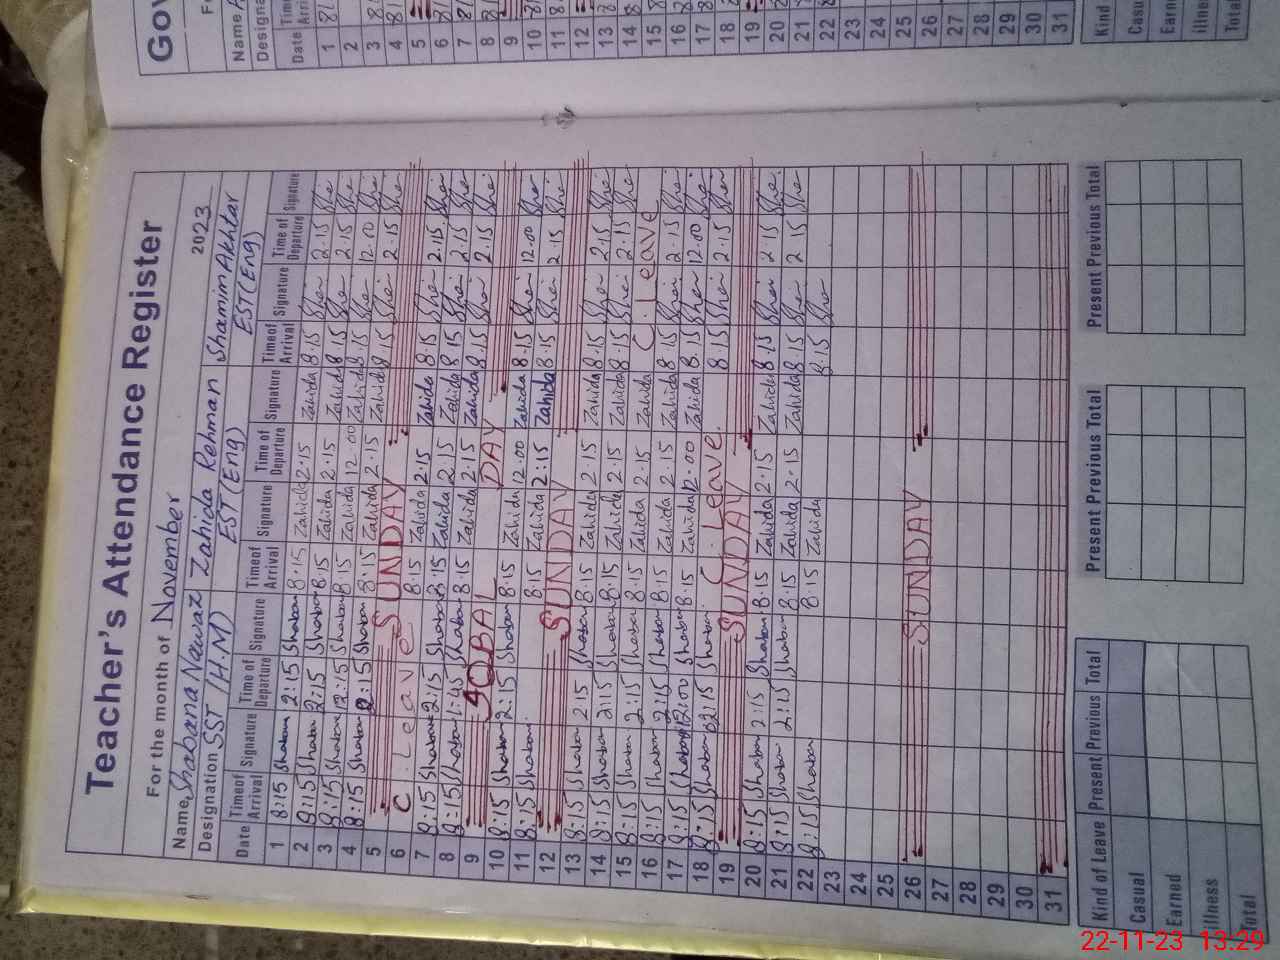 Teacher's Attendance Register
For the month of November 2023
Name Shabana Nawaz Zahida Rehman Shamim Akhtar
Designation SST (H.M) EST (Eng) EST (Eng)
Date Time of Arrival Signature Time of Departure Signature Time of Arrival Signature Time of Departure Signature Time of Arrival Signature Time of Departure Signature
1 8:15 Shaban 2:15 Shaban 8.15 Zahida 2.15 Zahida 8.15 Sha 2.15 Sha
2 8:15 Shaban 2:15 Shaban 8.15 Zahida 2.15 Zahida 8.15 Sha 2.15 Sha
3 8:15 Shaban 12:15 Shaban 8.15 Zahida 12.00 Zahida 8.15 Sha 12.00 Sha
4 8:15 Shaban 2:15 Shaban 8.15 Zahida 2.15 Zahida 8.15 Sha 2.15 Sha
5 SUNDAY
6 C. Leave 8.15 Zahida 2.15 Zahida 8.15 Sha 2.15 Sha
7 8:15 Shaban 2:15 Shaban 8.15 Zahida 2.15 Zahida 8.15 Sha 2.15 Sha
8 8:15 Shaban 1:45 Shaban 8.15 Zahida 2.15 Zahida 8.15 Sha 2.15 Sha
9 IQBAL DAY
10 8:15 Shaban 2:15 Shaban 8.15 Zahida 12.00 Zahida 8.15 Sha 12.00 Sha
11 8:15 Shaban 8.15 Zahida 2:15 Zahida 8.15 Sha 2.15 Sha
12 SUNDAY
13 8:15 Shaban 2:15 Shaban 8.15 Zahida 2.15 Zahida 8.15 Sha 2.15 Sha
14 8:15 Shaban 2:15 Shaban 8.15 Zahida 2.15 Zahida 8.15 Sha 2.15 Sha
15 8:15 Shaban 2:15 Shaban 8.15 Zahida 2.15 Zahida C. Leave
16 8:15 Shaban 2:15 Shaban 8.15 Zahida 2.15 Zahida 8.15 Sha 2.15 Sha
17 8:15 Shaban 12:00 Shaban 8.15 Zahida 12.00 Zahida 8.15 Sha 12.00 Sha
18 8:15 Shaban 2:15 Shaban C. Leave. 8.15 Sha 2.15 Sha
19 SUNDAY
20 8:15 Shaban 2:15 Shaban 8.15 Zahida 2.15 Zahida 8.15 Sha 2.15 Sha
21 8:15 Shaban 2:15 Shaban 8.15 Zahida 2.15 Zahida 8.15 Sha 2.15 Sha
22 8:15 Shaban 8.15 Zahida 8.15 Sha
23
24
25
26 SUNDAY
27
28
29
30
31
Kind of Leave Present Previous Total Present Previous Total Present Previous Total
Casual
Earned
illness
Total
Gov
Name
Date
1
2
3
4
5
6
7
8
9
10
11
12
13
14
15
16
17
18
19
20
21
22
23
24
25
26
27
28
29
30
31
Kind
illness
Total
22-11-23 13:29